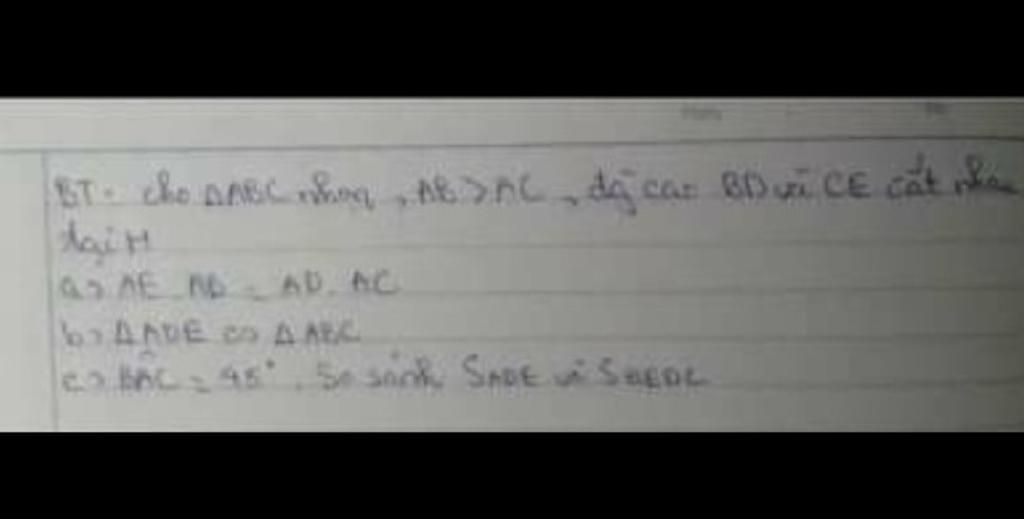 BT. cho ΔABC nhọn, AB > AC, đg cao BD và CE cắt nhau
tại H
a> AE.AB = AD.AC
b> ΔADE ∽ ΔABC
c> BÂC = 45°. So sánh SADE và SBEDC